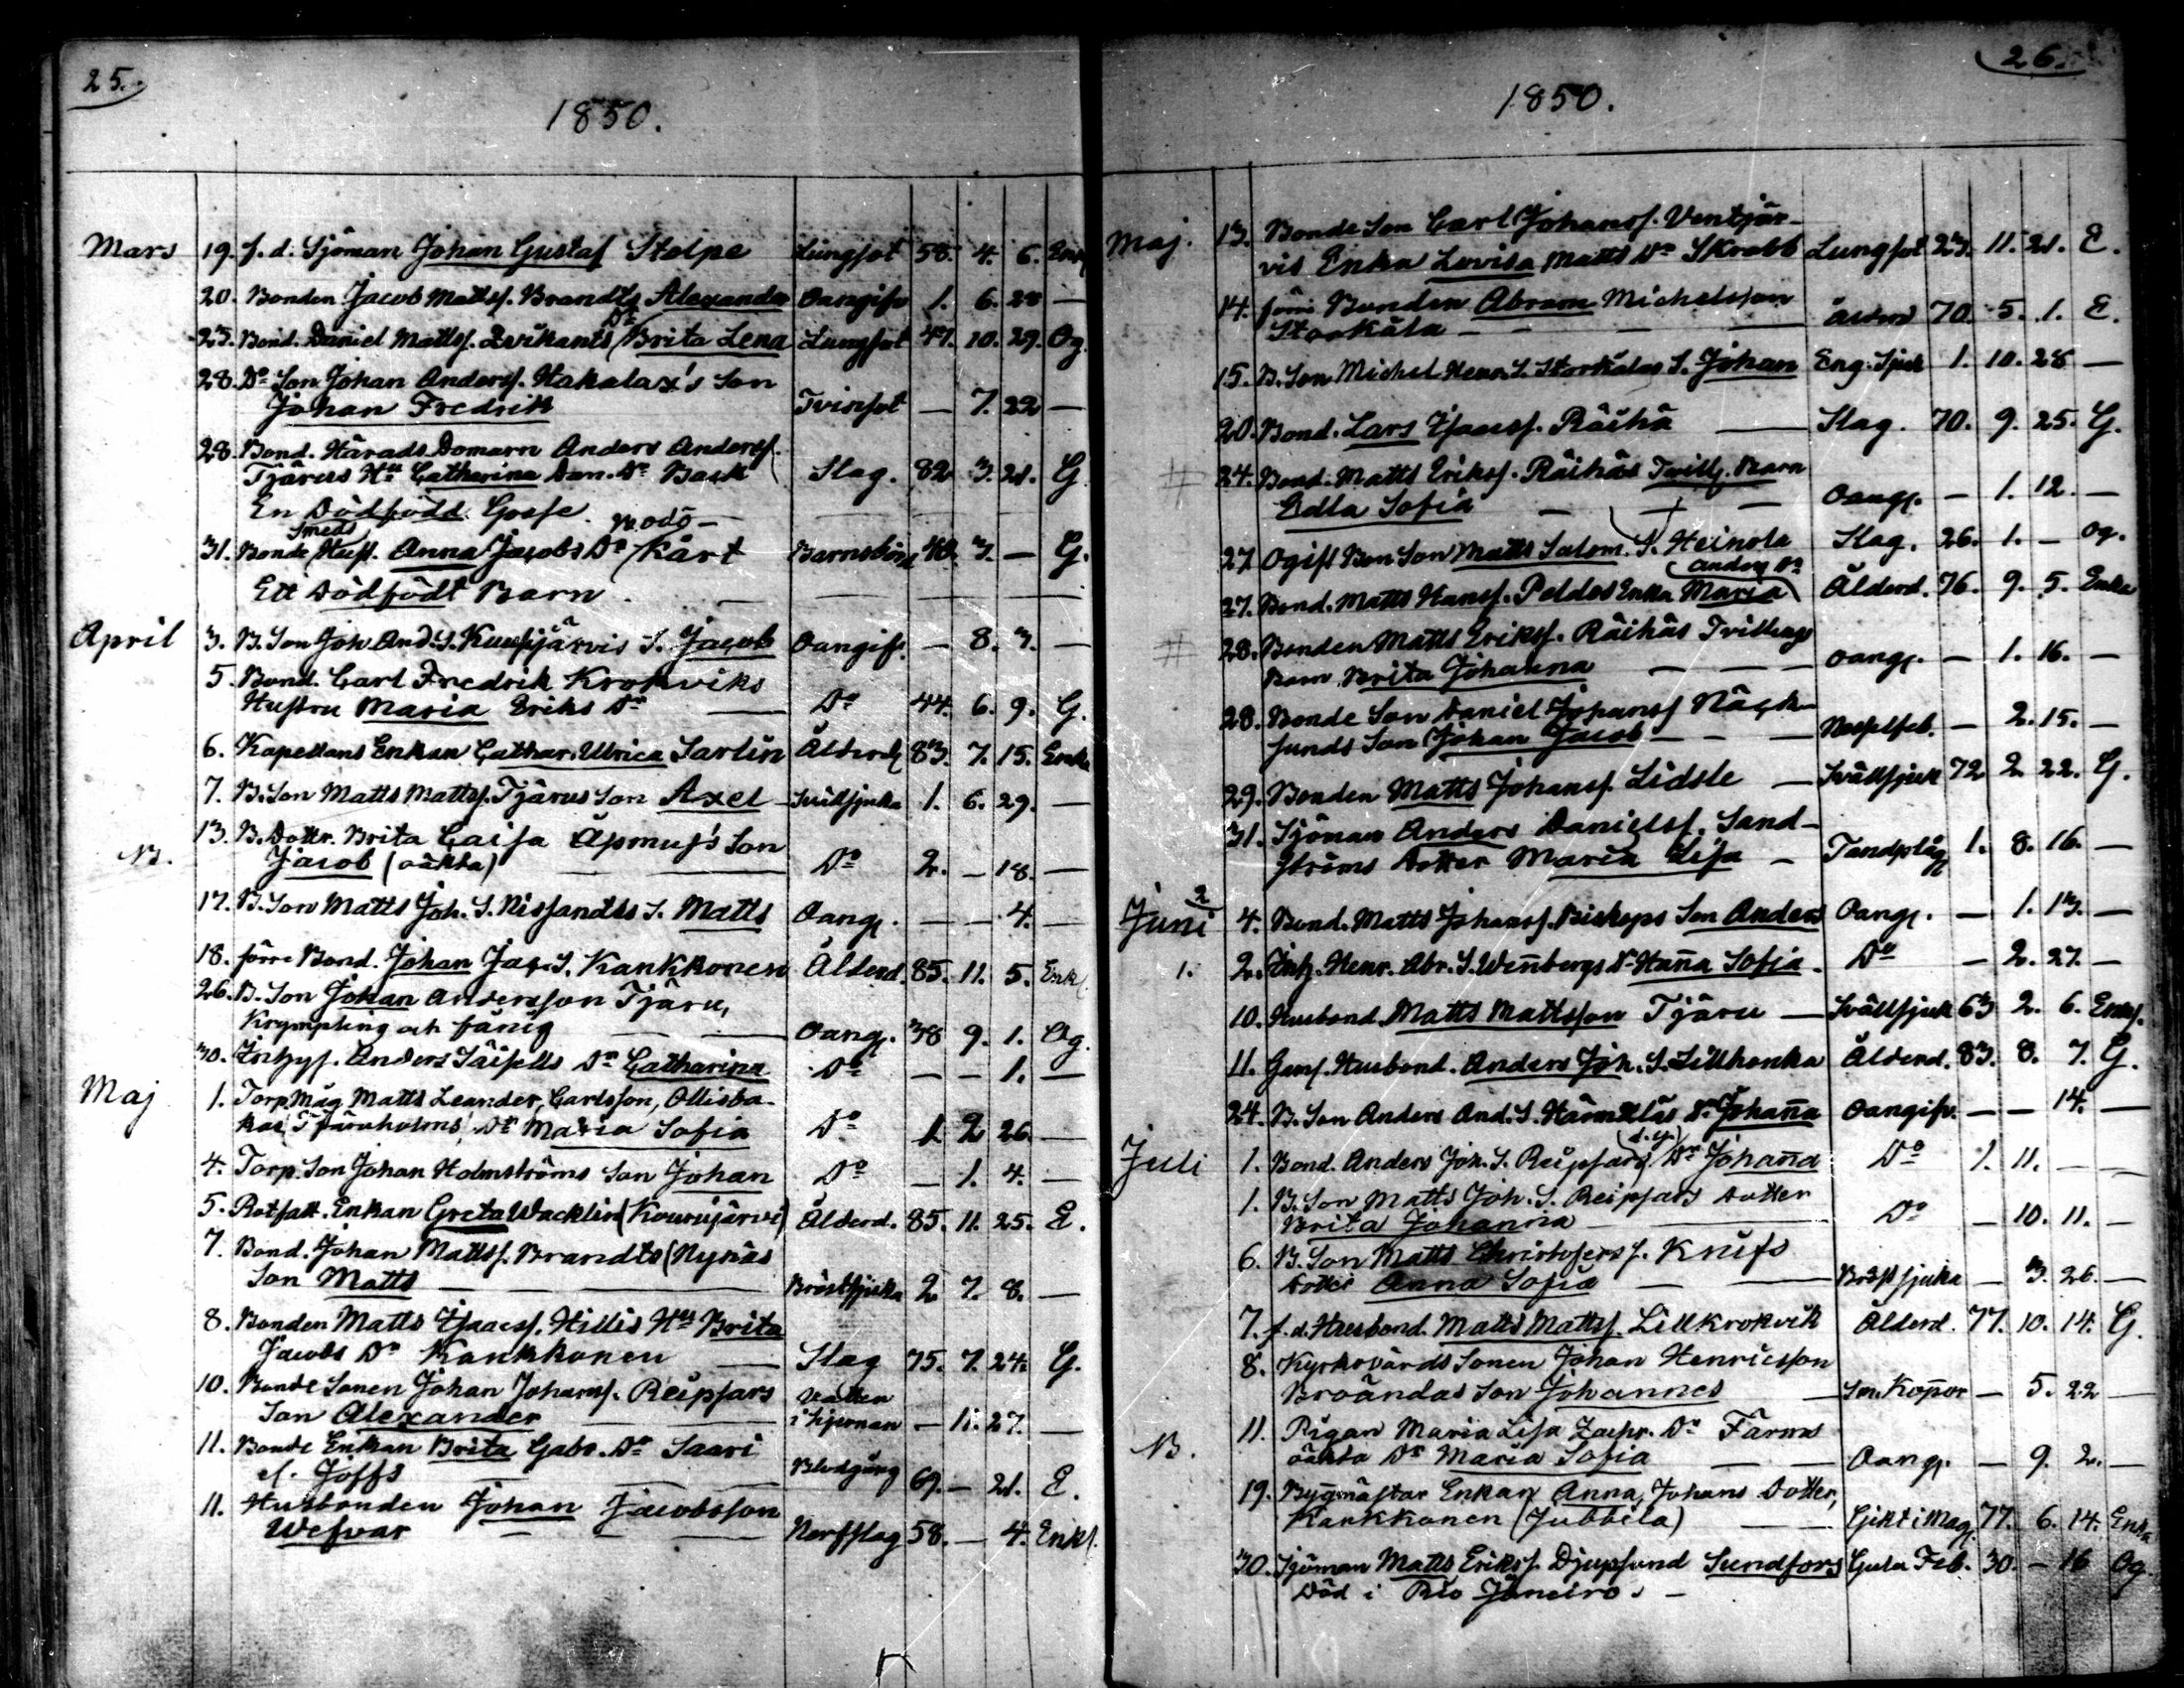 25.
1850.
Mars 19. f. d. Sjöman Johan Gustaf Stolpe Lungsot 58. 4. 6. Enkl
20. Bonden Jacob Mattss. Brandts Alexander Oangifv 1. 6. 28 —
23. Bond. Daniel Mattss. Qvikants Dr Brita Lena Lungsot 47. 10. 29. Og.
28. Do Son Johan Anderss. Hakalax's Son
Johan Fredrik Tvinsot — 7. 22 —
28. Bond. Härads Domarn Anders Anderss.
Tjärus Hu Catharina Dan. Dr Back Slag. 82 3. 21. G
En Dödfödd Gosse.
31. Bonde Smeds Hust. Anna Jacobs Dr Rodö- Kårt Barnsbörd 40. 3. — G.
Ett Dödfödt Barn.
April 3. B. Son Joh And. S. Kuusijärvis S. Jacob Oangifv. — 8. 3. —
5. Bond. Carl Fredrik Krokviks
Hustru Maria Eriks Dr — Do 44. 6. 9. G.
6. Kapellans Enkan Cathar. Ulrica Sarlin Ålderd 83. 7. 15. Enka
7. B. Son Matts Mattss. Tjärus Son Axel Svullsjuka 1. 6. 29. —
13. B. Dottr. Brita Caisa Åpmuss's Son
N. Jacob (oäkta) — Do 2. — 18. —
17. B. Son Matts Joh. S. Nissandts S. Matts Oangf. — — 4. —
18. förre Bond. Johan Jac. S. Kankkonen Ålderd. 85. 11. 5. Enkl.
26. B. Son Johan Andersson Tjäru,
Krympling och fånig — Oangf. 38 9. 1. Og.
30. Inhys. Anders Säisells Dr Catharina Do — — 1. —
Maj 1. Torp. Måg Matts Leander, Carlsson, Ollisba-
kas Tjäruholms Dr Maria Sofia Do 1 2 26. —
4. Torp. Son Johan Holmströms Son Johan Do — 1. 4. —
5. Rotfatt. Enkan Greta Wacklin (Kourujärvi) Ålderd. 85. 11. 25. E.
7. Bond. Johan Mattss. Brandts (Nynäs
Son Matts — Bröstsjuka 2. 7. 8. —
8. Bonden Matts Isaacss. Hillis Hu Brita
Jacobs Dr Kankkonen — Slag 75. 7. 24. G.
10. Bonde Sonen Johan Johanss. Reipsars Vatten
Son Alexander — i hjernan — 11. 27. —
11. Bonde Enkan Brita Gabr. Dr Saari
el. Joffs Blodgång 69. — 21. E.
11. Husbonden Johan Jacobsson
Wesvar — Nerfslag 58. — 4. Enkl.
26.
1850.
Maj. 13. Bonde Son Carl Johanss. Ventjär-
vis Enka Lovisa Matts Dr Skrabb Lungsot 23. 11. 21. E.
14. förre Bonden Abram Michelsson
Storkåla — Ålderd 70. 5. 1. E.
15. B. Son Michel Henr. S. Storkålas S. Johan Eng. Sjuk 1. 10. 28 —
20. Bond. Lars Isaacss. Räihä — Slag. 70. 9. 25. G.
# 24. Bond. Matts Erikss. Räihäs Tvillg. Barn
Edla Sofia — Oangf. — 1. 12. —
27. Ogift Bon Son Matts Salom. S. Heinola Slag. 26. 1. — og.
27. Bond. Matts Hanss. Peldos Enka Maria (Anders Dr Ålderd. 76. 9. 5. Enka
# 28. Bonden Matts Erikss. Räihäs Tvillings
Barn Brita Johanna — oangf. — 1. 16. —
28. Bonde Son Daniel Johanss Näck-
sunds Son Johan Jacob — Nässelfeb. — 2. 15. —
29. Bonden Matts Johanss. Lidsle — Svullsjuk 72 2 22. G.
31. Sjöman Anders Danielss. Sand-
ströms Dotter Maria Lisa — Tandplåg 1. 8. 16. —
Juni 2 4. Bond. Matts Johanss. Biskops Son Anders Oangf. — 1. 13. —
1. 2. Inh. Henr. Abr. S. Wen̄bergs Dr Han̄a Sofia Do — 2. 27. —
10. Husbond. Matts Mattsson Tjäru — Svullsjuk 63 2. 6. Enkl.
11. Gamf. Husbond. Anders Joh. S. Lillhonka Ålderd. 83. 8. 7. G.
24. B. Son Anders And. S. Härmälas Dr Johan̄a Oangifv. — — 14. —
Juli 1. Bond. Anders Joh. S. Reipsars (d. y.) Dr Johan̄a Do 1. 11. — —
1. B. Son Matts Joh. S. Reipsars Dotter
Brita Johanna — Do — 10. 11. —
6. B. Son Matts Christoferss. Knifs
Dotter Anna Sofia — Bröstsjuka — 3. 26. —
7. f. d. Husbond. Matts Mattss. Lillkrokvik Ålderd. 77. 10. 14. G.
8. Kyrkovärds Sonen Johan Henricsson
Broändas Son Johannes — Sm. Koppor — 5. 22 —
11. Pigan Maria Lisa Zachr. Dr Färms
N. oäkta Dr Maria Sofia — Oangf. — 9. 2. —
19. Bygmästar Enkan Anna, Johans Dotter,
Kankkonen (Jubbila) — Gikt i Mag. 77. 6. 14. Enka
30. Sjöman Matts Erikss. Djupsund Sundfors Gula Feb. 30. — 16 Og.
Död i Rio Janeiro. —